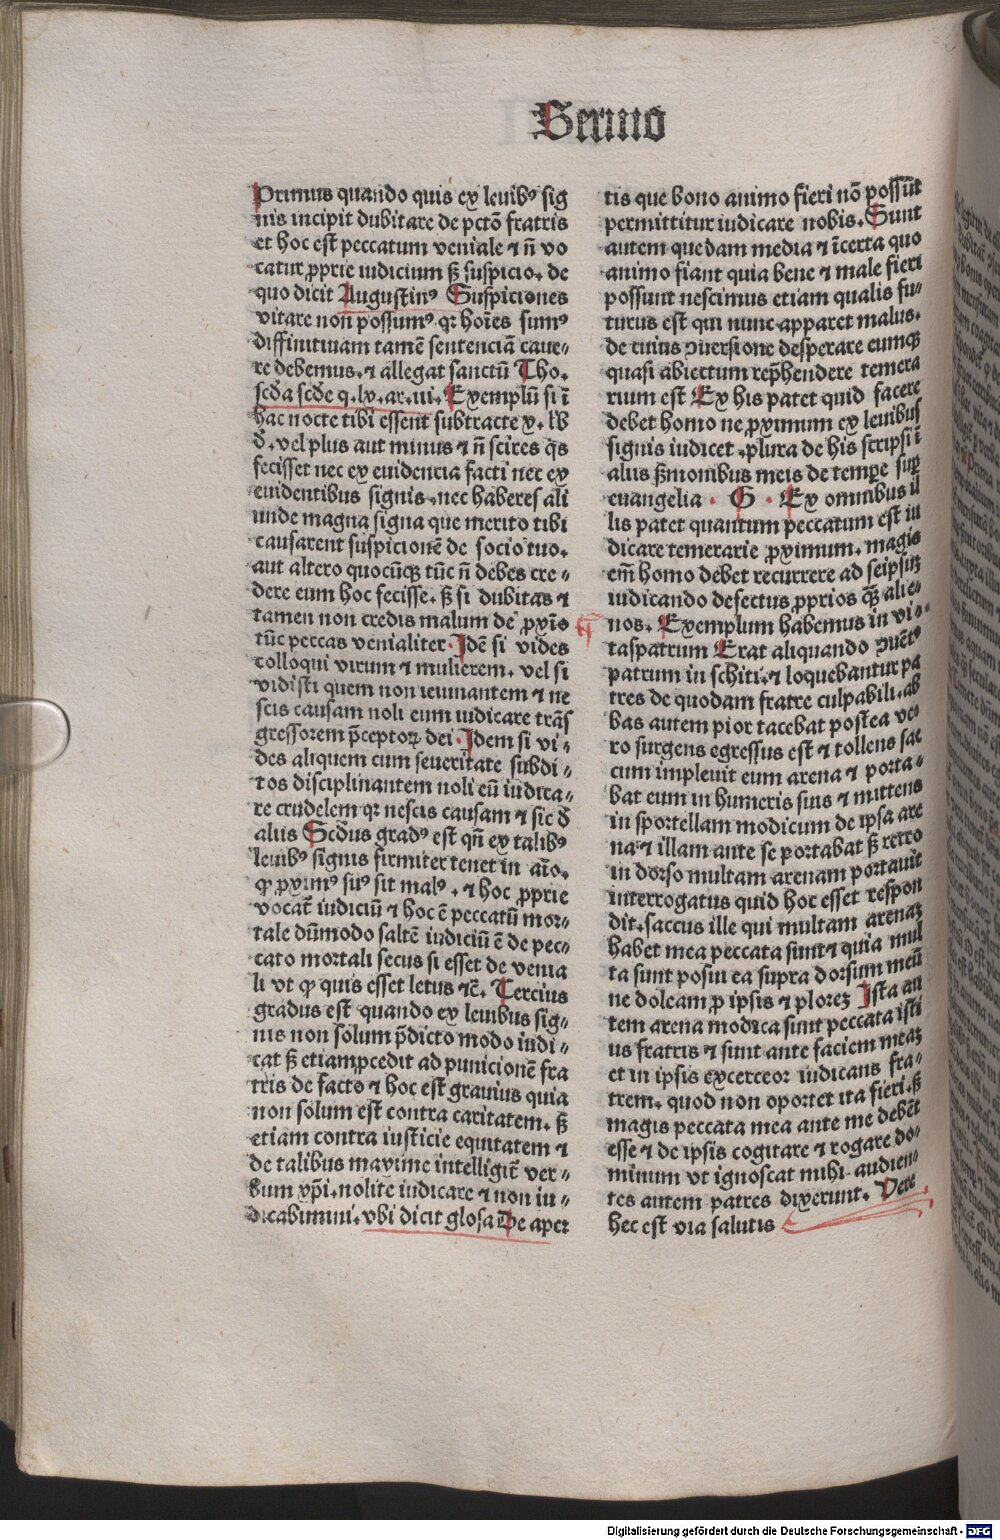 Sermo
Primus quando quis ex leuibꝰ sig
nis incipit dubitare de pctō fratris
et hoc est peccatum veniale ⁊ ñ vo
catur ꝓprie iudicium sꝫ suspicio. de
quo dicit Augustinꝰ Suspiciones
vitare non possumꝰ qꝛ hoīes sumꝰ
diffinitiuam tamē sentenciā caue⸗
re debemus. ⁊ allegat sanctū Tho.
scd̄a scd̄e q. lx. ar. iii. Exemplū si ī
hac nocte tibi essent subtracte x. lb̄
d̄. vel plus aut minus ⁊ ñ scires qͥs
fecisset nec ex euidencia facti nec ex
euidentibus signis. nec haberes ali
unde magna signa que merito tibi
causarent suspicionē de socio tuo.
aut altero quocūqꝫ tūc ñ debes cre⸗
dere eum hoc fecisse. sꝫ si dubitas ⁊
tamen non credis malum de ꝓxīo
tūc peccas venialiter. Idē si vides
colloqui virum ⁊ mulierem. vel si
vidisti quem non ieiunantem ⁊ ne
scis causam noli eum iudicare trās
gressorem p̄ceptoꝝ dei. Idem si vi⸗
des aliquem cum seueritate subdi⸗
tos disciplinantem noli eū iudica⸗
re crudelem qꝛ nescis causam ⁊ sic d̄
aliis Scd̄us gradꝰ est qñ ex talibꝰ
leuibꝰ signis firmiter tenet in aīo.
ꝙ ꝓximꝰ suꝰ sit malꝰ. ⁊ hoc ꝓprie
vocat̄ iudiciū ⁊ hoc ē peccatū mor⸗
tale dūmodo saltē iudiciū ē de pec⸗
cato mortali secus si esset de venia
li vt ꝙ quis esset letus ⁊c̄. Tercius
gradus est quando ex leuibus sig⸗
nis non solum p̄dicto modo iudi⸗
cat sꝫ etiam ꝓcedit ad punicionē fra
tris de facto ⁊ hoc est grauius quia
non solum est contra caritatem. sꝫ
etiam contra iusticie equitatem ⁊
de talibus maxime intelligit̄ ver⸗
bum xp̄i. nolite iudicare ⁊ non iu⸗
dicabimini. vbi dicit glosa De aper
tis que bono animo fieri nō possūt
permittitur iudicare nobis. Sunt
autem quedam media ⁊ īcerta quo
animo fiant quia bene ⁊ male fieri
possunt nescimus etiam qualis fu⸗
turus est qui nunc apparet malus.
de cuius ꝯuersione desperare eumqꝫ
quasi abiectum rep̄hendere temera
rium est Ex his patet quid facere
debet homo ne ꝓximum ex leuibus
signis iudicet. plura de his scripsi ī
aliis sꝫmonibus meis de tempe sup̄
euangelia. G. Ex omnibus il
lis patet quantum peccatum est iu
dicare temerarie ꝓximum. magis
em̄ homo debet recurrere ad seipsuꝫ
iudicando defectus ꝓprios qꝫ̄ alie⸗
nos. Exemplum habemus in vi⸗
taspatrum Erat aliquando ꝯuētꝰ
patrum in schiti. ⁊ loquebantur pa
tres de quodam fratre culpabili. ab
bas autem pior tacebat postea ve⸗
ro surgens egressus est ⁊ tollens sac
cum impleuit eum arena ⁊ porta⸗
bat eum in humeris suis ⁊ mittens
in sportellam modicum de ipsa are
na ⁊ illam ante se portabat sꝫ retro
in dorso multam arenam portauit
interrogatus quid hoc esset respon
dit. saccus ille qui multam arenaꝫ
habet mea peccata sunt ⁊ quia mul
ta sunt posui ea supra dorsum meū
ne doleam ꝓ ipsis ⁊ ploreꝫ Ista au
tem arena modica sunt peccata isti
us fratris ⁊ sunt ante faciem meaꝫ
et in ipsis excerceor iudicans fra⸗
trem. quod non oportet ita fieri. sꝫ
magis peccata mea ante me debēt
esse ⁊ de ipsis cogitare ⁊ rogare do⸗
minum vt ignoscat mihi. audien⸗
tes autem patres dixerunt. Vere
hec est via salutis
Digitalisierung gefördert durch die Deutsche Forschungsgemeinschaft - DFG